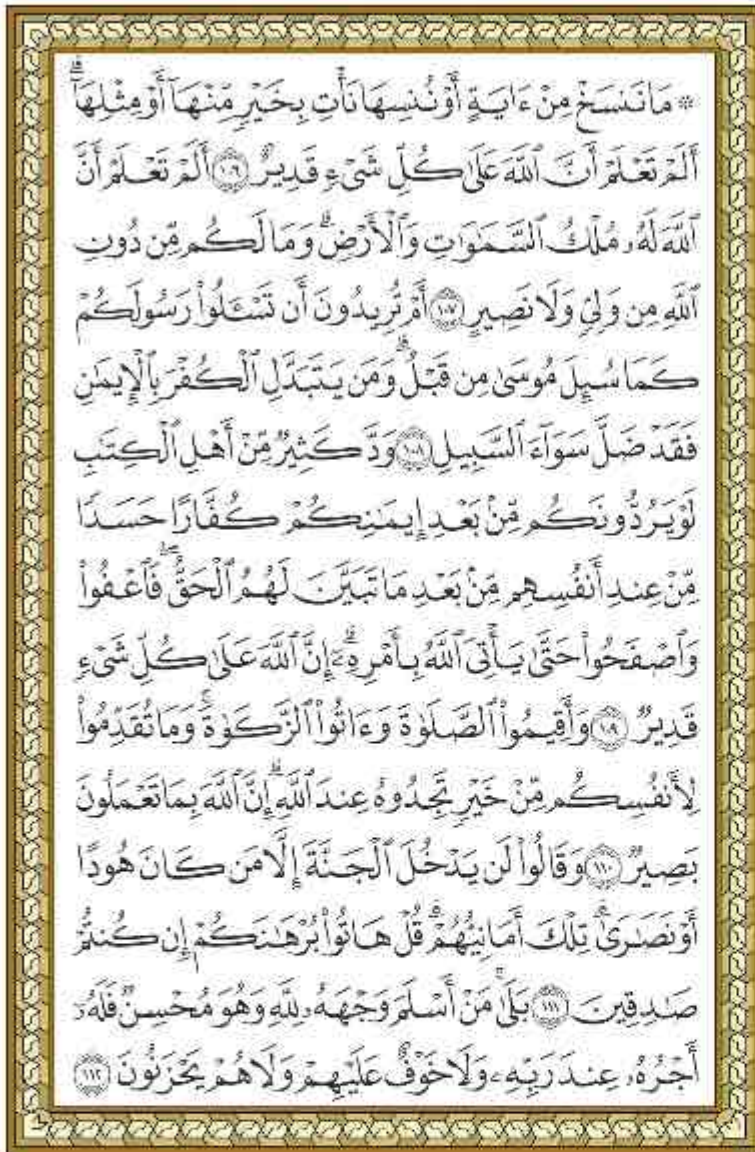 ۞ مَا نَنسَخْ مِنْ ءَايَةٍ أَوْ نُنسِهَا نَأْتِ بِخَيْرٍ مِّنْهَآ أَوْ مِثْلِهَآ ۗ
أَلَمْ تَعْلَمْ أَنَّ ٱللَّهَ عَلَىٰ كُلِّ شَىْءٍ قَدِيرٌ ﴿١٠٦﴾ أَلَمْ تَعْلَمْ أَنَّ
ٱللَّهَ لَهُۥ مُلْكُ ٱلسَّمَـٰوَٰتِ وَٱلْأَرْضِ ۗ وَمَا لَكُم مِّن دُونِ
ٱللَّهِ مِن وَلِىٍّ وَلَا نَصِيرٍ ﴿١٠٧﴾ أَمْ تُرِيدُونَ أَن تَسْـَٔلُوا۟ رَسُولَكُمْ
كَمَا سُئِلَ مُوسَىٰ مِن قَبْلُ ۗ وَمَن يَتَبَدَّلِ ٱلْكُفْرَ بِٱلْإِيمَـٰنِ
فَقَدْ ضَلَّ سَوَآءَ ٱلسَّبِيلِ ﴿١٠٨﴾ وَدَّ كَثِيرٌ مِّنْ أَهْلِ ٱلْكِتَـٰبِ
لَوْ يَرُدُّونَكُم مِّنۢ بَعْدِ إِيمَـٰنِكُمْ كُفَّارًا حَسَدًا
مِّنْ عِندِ أَنفُسِهِم مِّنۢ بَعْدِ مَا تَبَيَّنَ لَهُمُ ٱلْحَقُّ ۖ فَٱعْفُوا۟
وَٱصْفَحُوا۟ حَتَّىٰ يَأْتِىَ ٱللَّهُ بِأَمْرِهِۦٓ ۗ إِنَّ ٱللَّهَ عَلَىٰ كُلِّ شَىْءٍ
قَدِيرٌ ﴿١٠٩﴾ وَأَقِيمُوا۟ ٱلصَّلَوٰةَ وَءَاتُوا۟ ٱلزَّكَوٰةَ ۚ وَمَا تُقَدِّمُوا۟
لِأَنفُسِكُم مِّنْ خَيْرٍ تَجِدُوهُ عِندَ ٱللَّهِ ۗ إِنَّ ٱللَّهَ بِمَا تَعْمَلُونَ
بَصِيرٌ ﴿١١٠﴾ وَقَالُوا۟ لَن يَدْخُلَ ٱلْجَنَّةَ إِلَّا مَن كَانَ هُودًا
أَوْ نَصَـٰرَىٰ ۗ تِلْكَ أَمَانِيُّهُمْ ۗ قُلْ هَاتُوا۟ بُرْهَـٰنَكُمْ إِن كُنتُمْ
صَـٰدِقِينَ ﴿١١١﴾ بَلَىٰ مَنْ أَسْلَمَ وَجْهَهُۥ لِلَّهِ وَهُوَ مُحْسِنٌ فَلَهُۥٓ
أَجْرُهُۥ عِندَ رَبِّهِۦ وَلَا خَوْفٌ عَلَيْهِمْ وَلَا هُمْ يَحْزَنُونَ ﴿١١٢﴾